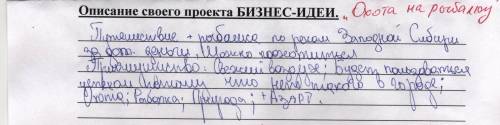 Описание своего проекта БИЗНЕС-ИДЕИ. "Охота на рыбалку
Путешествие + рыбалка по рекам Западной Сибири
за доп. деньги. Можно
Преимущество: Свежий воздух; Будет пользоваться
успехом потому что нет такого в городе;
Охота; Рыбалка; Природа; + Азарт.